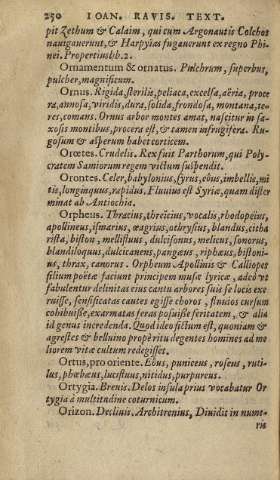 250 IOAN. RAVIS. TEXT.
pit Zethum & Calaim, qui cum Argonautis Colchos
nauigauerunt, & Harpyias fugauerunt ex regno Phi-
nei. Propertius lib. 2.
Ornamentum & ornatus. Pulchrum, superbus,
pulcher, magnificum.
Ornus. Rigida, sterilis, peliaca, excelsa, aëria, proce
ra, annosa, viridis, dura, solida, frondosa, montana, te-
res, comans. Ornus arbor montes amat, nascitur in sa-
xosis montibus, procera est, & tamen infrugifera. Ru-
gosum & asperum habet corticem.
Orœtes. Crudelis. Rex fuit Parthorum, qui Poly-
cratem Samiorum regem victum suspendit.
Orontes. Celer, babylonius, syrus, eous, imbellis, mi
tis, longinquus, rapidus. Fluuius est Syriæ, quam dister
minat ab Antiochia.
Orpheus. Thracius, threicius, vocalis, rhodopeius,
apollineus, ismarius, œagrius, othrysius, blandus, citha
rista, biston, mellifluus, dulcisonus, melicus, sonorus,
blandiloquus, dulcicanens, pangæus, riphæus, bistoni-
us, thrax, canorus. Orpheum Apollinis & Calliopes
filium poëtæ faciunt principem musæ lyricæ, adeò vt
fabulentur delinitas eius cantu arbores suis se locis ex-
ruisse, sensificatas cautes egisse choros, fluuios cursum
cohibuisse, exarmatas feras posuisse feritatem, & alia
id genus incredenda. Quod ideo fictum est, quoniam &
agrestes & belluino propè ritu degentes homines ad me
liorem vitæ cultum redegisset.
Ortus, pro oriente. Eous, puniceus, roseus, ruti-
lus, phœbæus, lucifluus, nitidus, purpureus.
Ortygia. Brenis. Delos insula prius vocabatur Or
tygia à multitudine coturnicum.
Orizon. Decliuis. Architrenius, Diuidis in nume-
ris